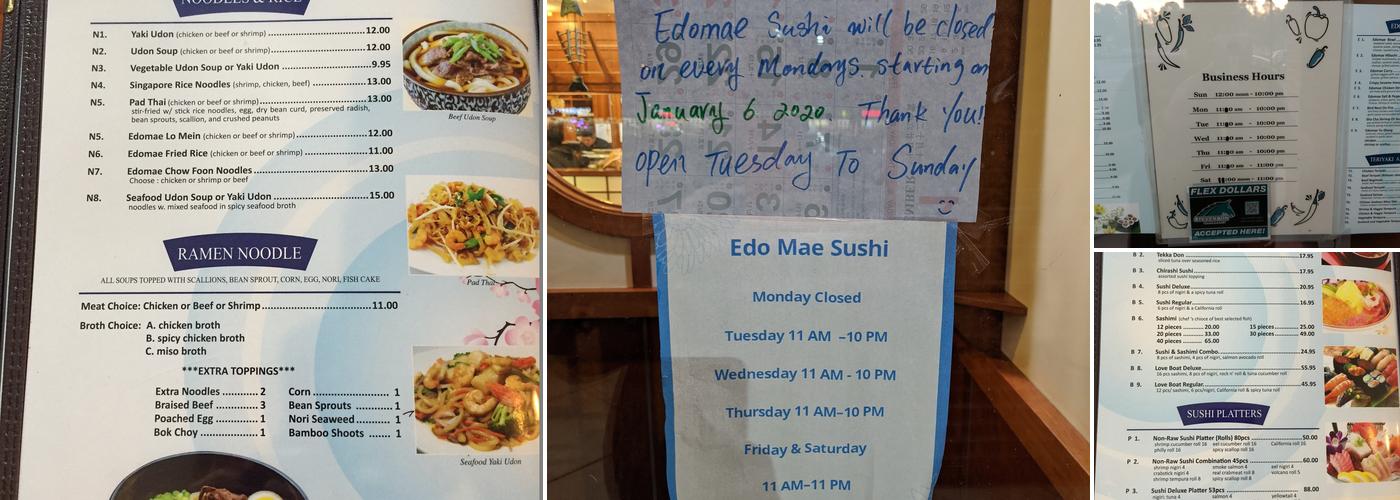 NOODLES & RICE
N1. Yaki Udon (chicken or beef or shrimp) 12.00
N2. Udon Soup (chicken or beef or shrimp) 12.00
N3. Vegetable Udon Soup or Yaki Udon 9.95
N4. Singapore Rice Noodles (shrimp, chicken, beef) 13.00
N5. Pad Thai (chicken or beef or shrimp) 13.00
stir-fried w/ stick rice noodles, egg, dry bean curd, preserved radish,
bean sprouts, scallion, and crushed peanuts
N5. Edomae Lo Mein (chicken or beef or shrimp) 12.00
N6. Edomae Fried Rice (chicken or beef or shrimp) 11.00
N7. Edomae Chow Foon Noodles 13.00
Choose : chicken or shrimp or beef
N8. Seafood Udon Soup or Yaki Udon 15.00
noodles w. mixed seafood in spicy seafood broth
Beef Udon Soup
Pad Thai
RAMEN NOODLE
ALL SOUPS TOPPED WITH SCALLIONS, BEAN SPROUT, CORN, EGG, NORI, FISH CAKE
Meat Choice: Chicken or Beef or Shrimp 11.00
Broth Choice: A. chicken broth
B. spicy chicken broth
C. miso broth
***EXTRA TOPPINGS***
Extra Noodles 2 Corn 1
Braised Beef 3 Bean Sprouts 1
Poached Egg 1 Nori Seaweed 1
Bok Choy 1 Bamboo Shoots 1
Seafood Yaki Udon
Edomae Sushi will be closed
on every Mondays. starting on
January 6 2020 Thank You!
open Tuesday To Sunday
Edo Mae Sushi
Monday Closed
Tuesday 11 AM –10 PM
Wednesday 11 AM - 10 PM
Thursday 11 AM–10 PM
Friday & Saturday
11 AM–11 PM
Business Hours
Sun 12:00 noon - 10:00pm
Mon am - 10:00pm
Tue am - 10:00pm
Wed am - 10:00pm
Thu am - 10:00pm
Fri am - 11:00pm
Sat am - 11:00pm
FLEX DOLLARS
ACCEPTED HERE!
TERIYAKI
B 2. Tekka Don 17.95
sliced tuna over seasoned rice
B 3. Chirashi Sushi 17.95
assorted sushi topping
B 4. Sushi Deluxe 20.95
8 pcs of nigiri & a spicy tuna roll
B 5. Sushi Regular 16.95
6 pcs of nigiri & a California roll
B 6. Sashimi (chef 's choice of best selected fish)
12 pieces 20.00 15 pieces 25.00
20 pieces 33.00 30 pieces 49.00
40 pieces 65.00
B 7. Sushi & Sashimi Combo 24.95
8 pcs of sashimi, 4 pcs of nigiri, salmon avocado roll
B 8. Love Boat Deluxe 55.95
16 pcs sashimi, 8 pcs of nigiri, rock n' roll & tuna cucumber roll
B 9. Love Boat Regular 45.95
12 pcs/ sashimi, 6 pcs/nigiri, California roll & spicy tuna roll
SUSHI PLATTERS
P 1. Non-Raw Sushi Platter (Rolls) 80pcs 50.00
shrimp cucumber roll 16 eel cucumber roll 16 California roll 16
philly roll 16 spicy scallop roll 16
P 2. Non-Raw Sushi Combination 45pcs 60.00
shrimp nigiri 4 smoke salmon 4 eel nigiri 4
crabstick nigiri 4 real crabmeat roll 8 volcano roll 5
shrimp tempura roll 8 spicy scallop roll 8
P 3. Sushi Deluxe Platter 53pcs 88.00
nigiri: tuna 4 salmon 4 yellowtail 4